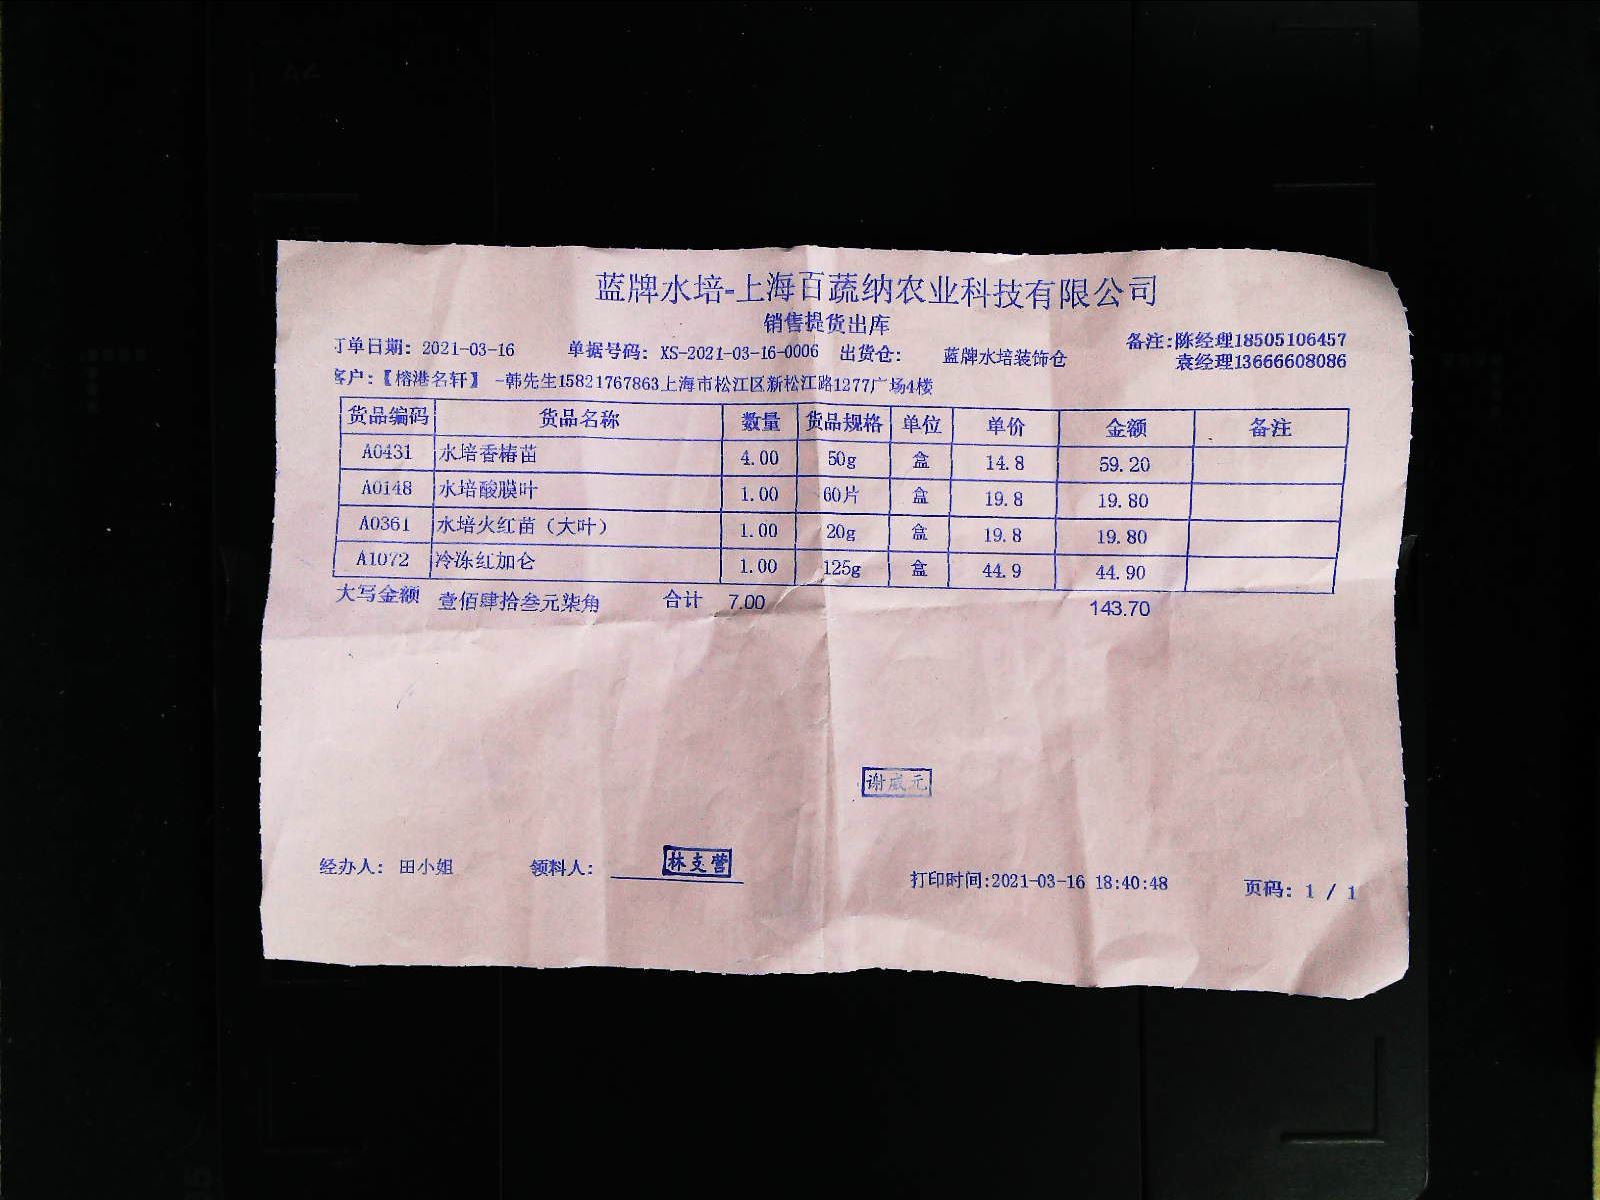 蓝牌水培-上海百蔬纳农业科技有限公司
销售提货出库
订单日期: 2021-03-16 单据号码: XS-2021-03-16-0006 出货仓: 蓝牌水培装饰仓 备注:陈经理18505106457
袁经理13666608086
客户:【榕港名轩】 -韩先生15821767863上海市松江区新松江路1277广场4楼
货品编码 货品名称 数量 货品规格 单位 单价 金额 备注
A0431 水培香椿苗 4.00 50g 盒 14.8 59.20
A0148 水培酸膜叶 1.00 60片 盒 19.8 19.80
A0361 水培火红苗（大叶） 1.00 20g 盒 19.8 19.80
A1072 冷冻红加仑 1.00 125g 盒 44.9 44.90
大写金额 壹佰肆拾叁元柒角 合计 7.00 143.70
谢成元
经办人: 田小姐 领料人: 林支营 打印时间:2021-03-16 18:40:48 页码: 1 / 1